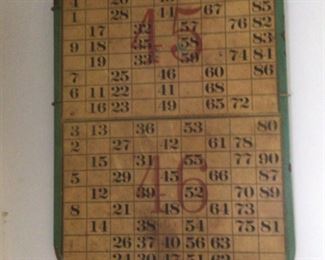 4 67 85
1 28 44 76 82
17 32 57
9 18 35 58 83
19 33 59 84
7 25 46 60 86
6 11 22 40 61
16 23 49 65 72
45
3 13 36 53 80
2 27 42 61 78
15 31 55 77 90
5 29 45 66 87
12 39 52 70 89
8 21 48 64 73
14 38 54 75 81
26 37 40 56 63
46